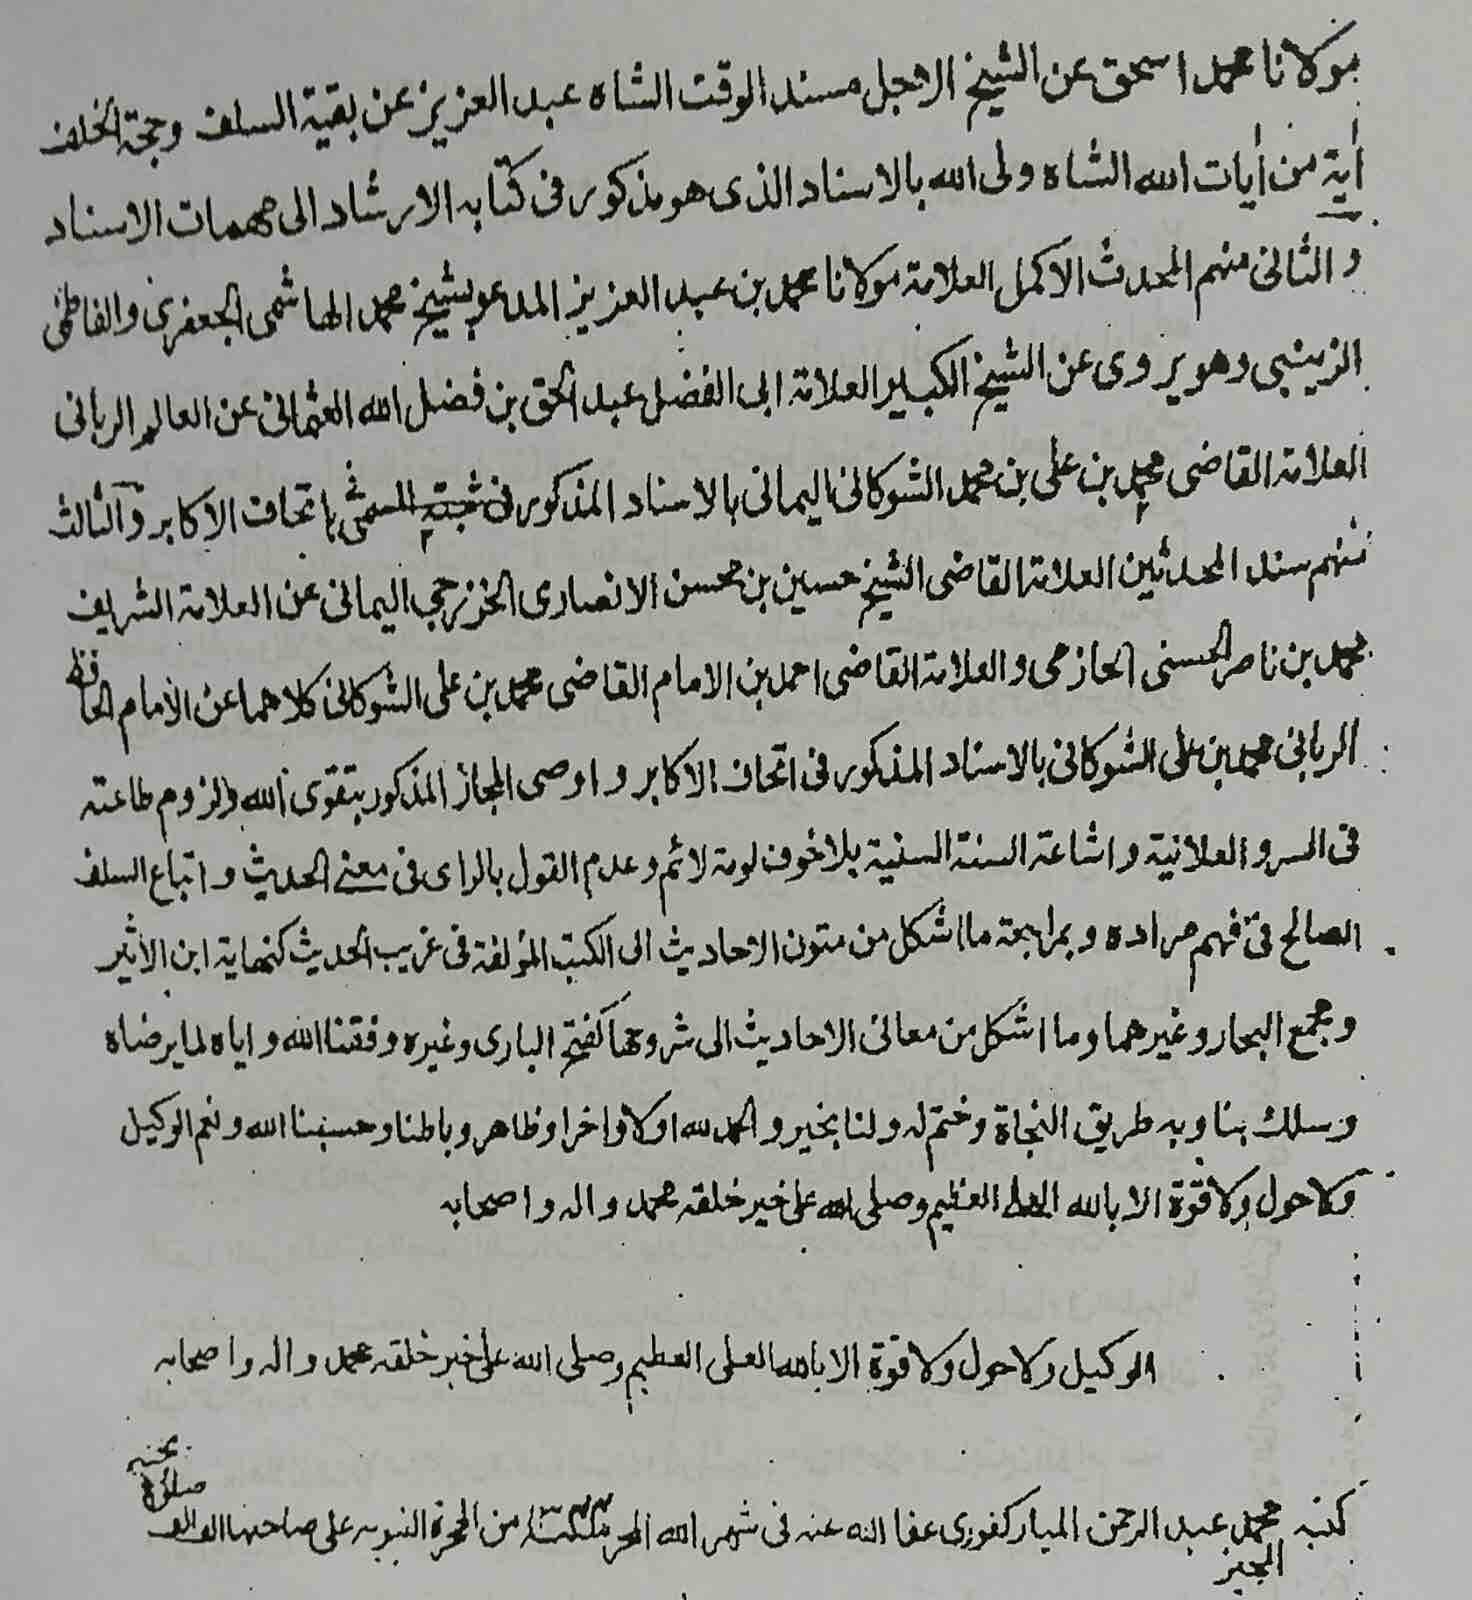 مولانا محمد اسحق عن الشيخ الاجل مسند الوقت الشاه عبد العزيز عن بقية السلف وحجة الخلف
اٰية من اٰيات الله الشاه ولى الله بالاسناد الذى هو مذكور فى كتابه الارشاد الى مهمات الاسناد
و الثانى منهم المحدث الاكمل العلامة مولانا محمد بن عبد العزيز المدعو بشيخ محمد الهاشمى الجعفرى والفاطمى
الزينبى وهو يروى عن الشيخ الكبير العلامة ابى الفضل عبد الحق بن فضل الله العثمانى عن العالم الربانى
العلامة القاضى محمد بن على بن محمد الشوكانى اليمانى بالاسناد المذكور فى ثبته المسمى باتحاف الاكابر والثالث
منهم سند المحدثين العلامة القاضى الشيخ حسين بن محسن الانصارى الخزرجى اليمانى عن العلامة الشريف
محمد بن ناصر الحسنى الحازمى والعلامة القاضى احمد بن الامام القاضى محمد بن على الشوكانى كلاهما عن الامام الحافظ
الربانى محمد بن على الشوكانى بالاسناد المذكور فى اتحاف الاكابر و اوصى المجاز المذكور بتقوى الله ولزوم طاعته
فى السر و العلانية و اشاعة السنة السنية بلا خوف لومة لائم و عدم القول بالراى فى معنى الحديث و اتباع السلف
الصالح فى فهم مراده و بمراجعة ما اشكل من متون الاحاديث الى الكتب المؤلفة فى غريب الحديث كنهاية ابن الأثير
و مجمع البحار و غيرهما وما اشكل من معانى الاحاديث الى شروحها كفتح البارى وغيره وفقنا الله و اياه لما يرضاه
وسلك بنا وبه طريق النجاة وختم له ولنا بخير و الحمد لله اولا واخرا وظاهر و باطنا و حسبنا الله و نعم الوكيل
ولا حول ولا قوة الا بالله العلى العظيم وصلى الله على خير خلقه محمد و اله و اصحابه
الوكيل ولا حول ولا قوة الا بالله العلى العظيم وصلى الله على خير خلقه محمد و اله و اصحابه
كتبه محمد عبد الرحمن المباركفورى عفا الله عنه فى شهر الله المحرم من الهجرة النبويه على صاحبها الف الف
صلوة
تحية
المجيز